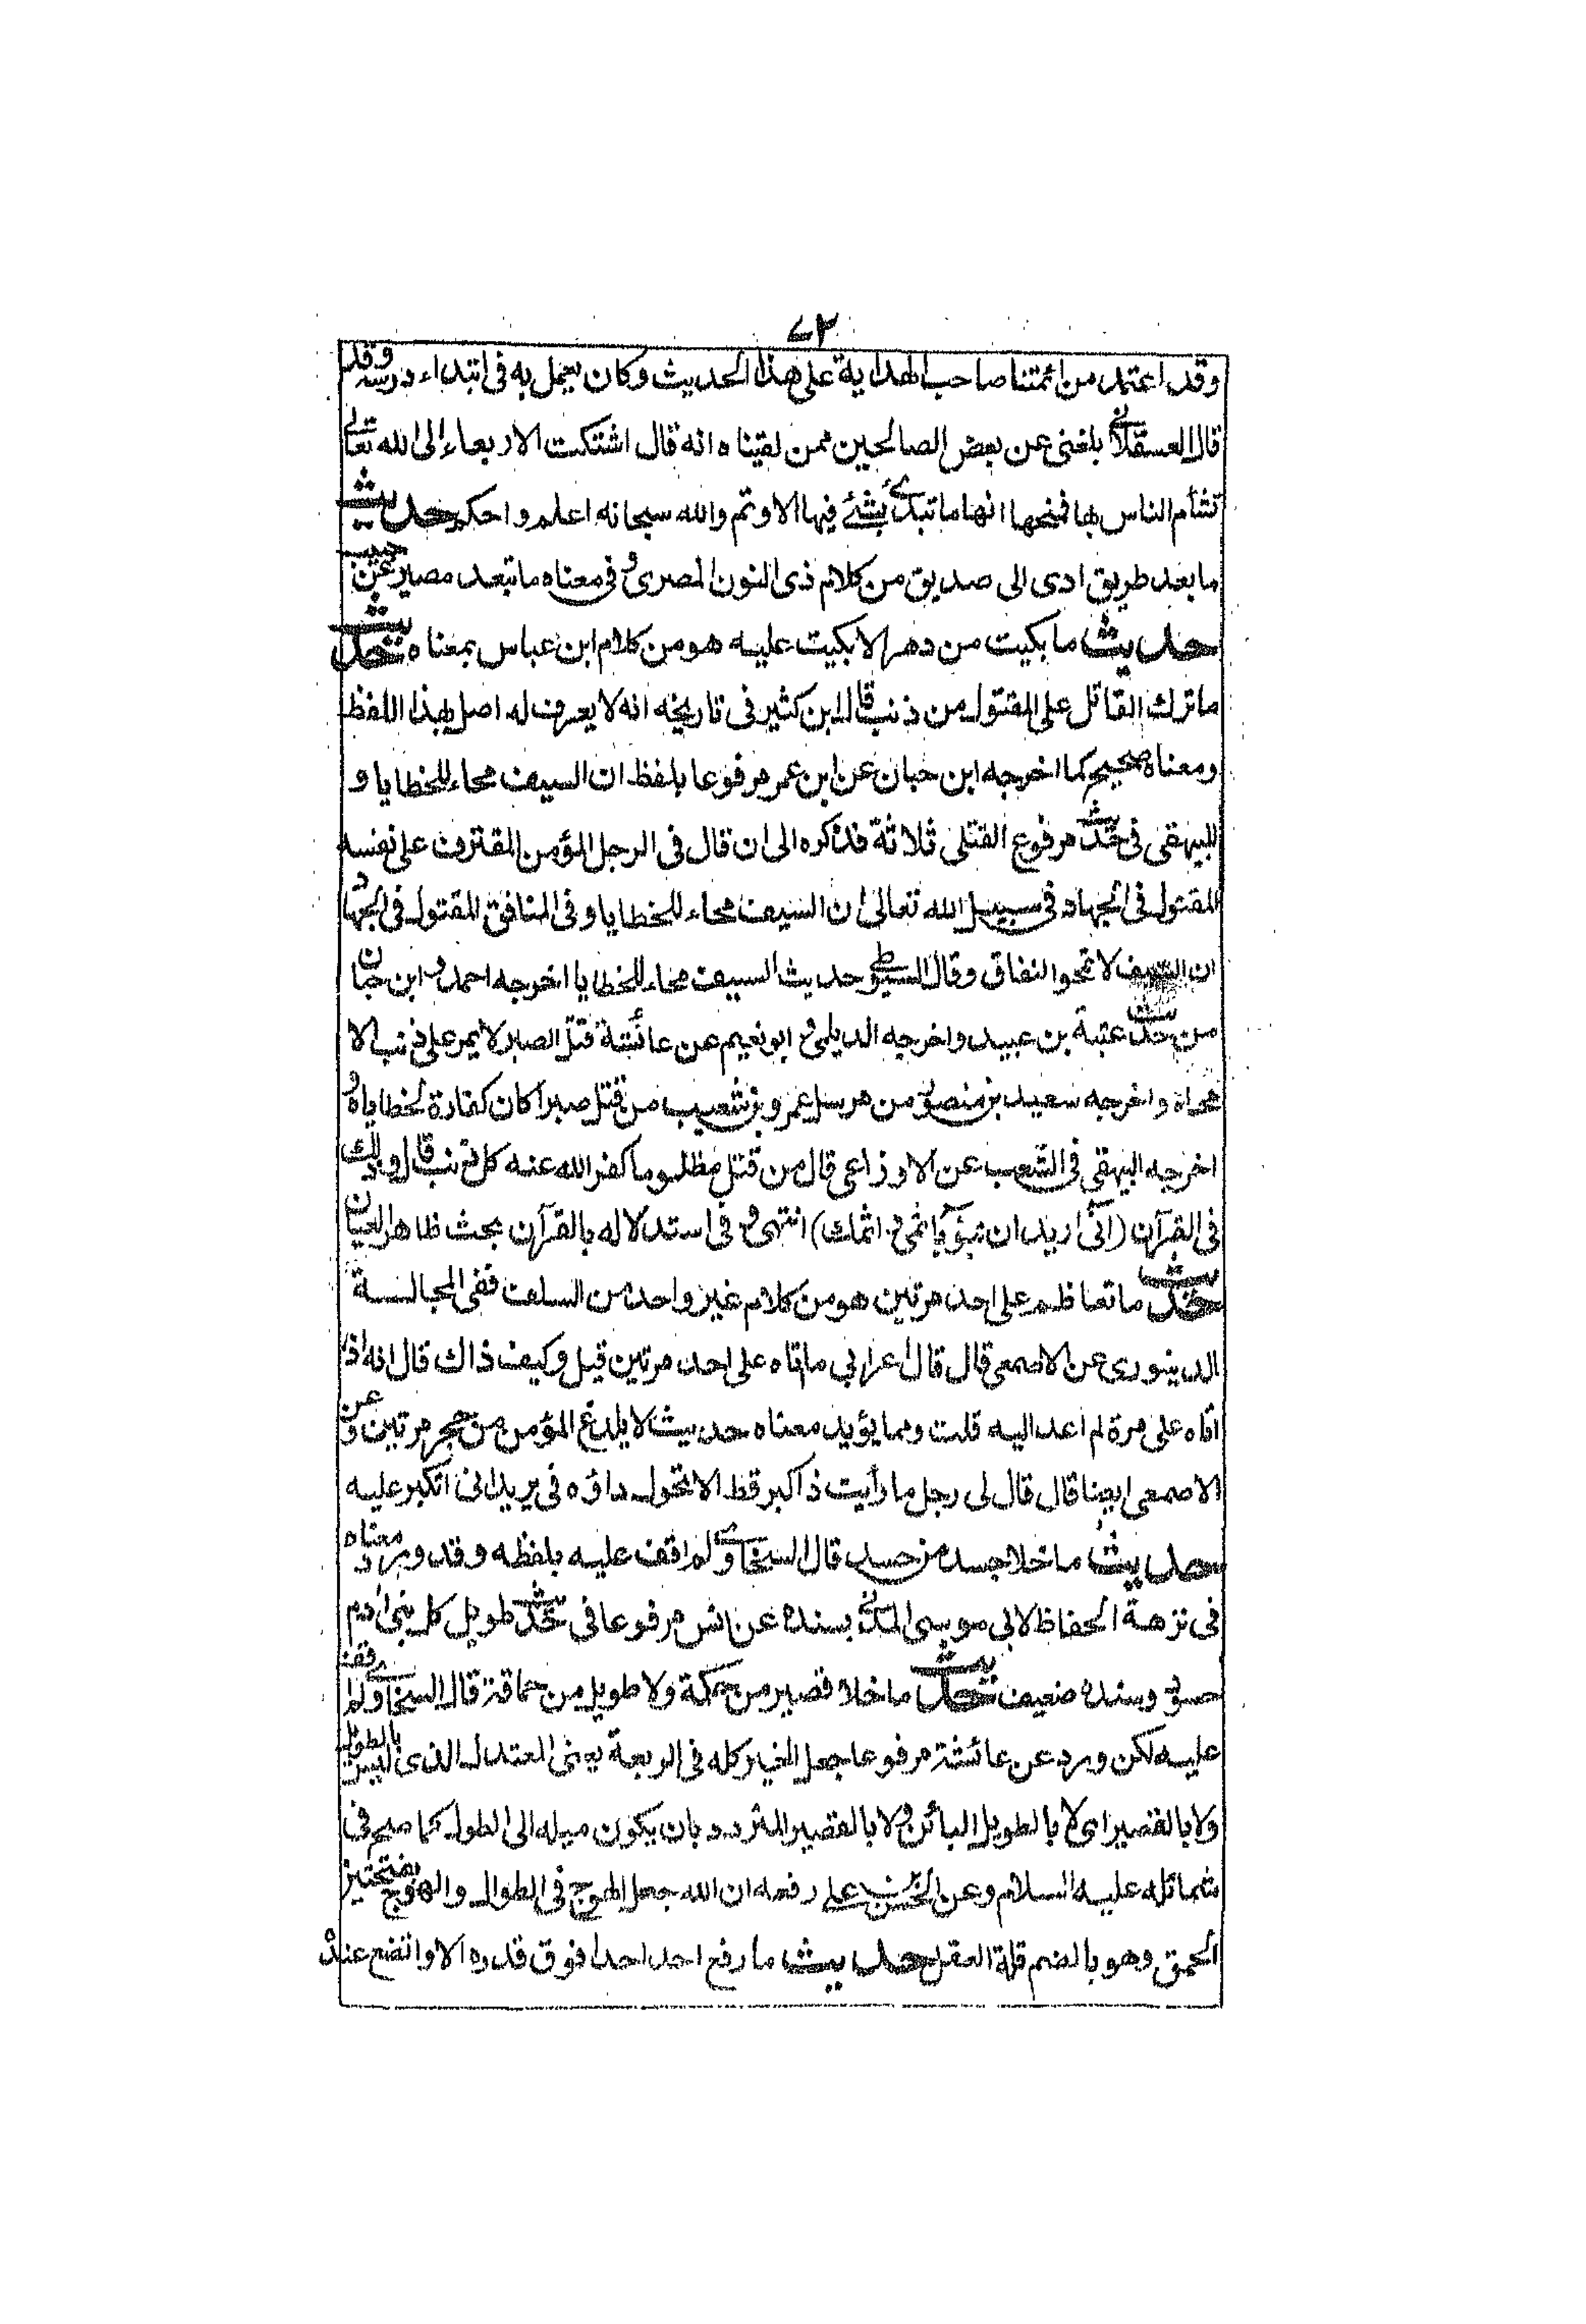 ٧٣
وقد اعتمد من ائمتنا صاحب الهداية على هذا الحديث وكان يعمل به في ابتداء درسه وقد
قال العسقلاني بلغني عن بعض الصالحين ممن لقيناه انه قال اشتكت الاربعاء إلى الله تعالى
تشأم الناس بها فمنحها انها ما تبدئ بشئ فيها الا وتم والله سبحانه اعلم واحكم حديث
ما بعد طريق ادى الى صديق من كلام ذى النون المصرى و في معناه ما تبعد مصير عن حبيب
حديث ما بكيت من دهر الا بكيت عليه هو من كلام ابن عباس بمعناه حديث
ما ترك القاتل على المقتول من ذنب قال ابن كثير في تاريخه انه لا يعرف له اصل بهذا اللفظ
ومعناه صحيح كما اخرجه ابن حبان عن ابن عمر مرفوعا بلفظ ان السيف محاء للخطايا و
للبيهقي في حديث مرفوع القتلى ثلاثة فذكره الى ان قال في الرجل المؤمن المقترف على نفسه
المقتول في الجهاد في سبيل الله تعالى ان السيف محاء للخطايا و في المنافق المقتول في الجهاد
ان السيف لا تمحوا النفاق وقال السيوطي حديث السيف محاء للخطايا اخرجه احمد و ابن حبان
من حديث عتبة بن عبيد واخرجه الديلمي و ابو نعيم عن عائشة قتل الصبر لا يمر على ذنب الا
محاه واخرجه سعيد بن منصور من مرسل عمرو بن شعيب من قتل صبرا كان كفارة لخطاياه و
اخرجه البيهقي في الشعب عن الاوزاعي قال من قتل مظلوما كفر الله عنه كل ذنب قال وذلك
في القرآن (انى اريد ان تبوؤ باثمي و اثمك) انتهى و في استدلاله بالقرآن بحث ظاهر للعيان
حديث ما تعاظم على احد مرتين هو من كلام غير واحد من السلف ففي المجالسة
الدينوري عن الاصمعي قال قال اعرابي ما تاه على احد مرتين قيل وكيف ذاك قال انه اذا
تاه على مرة لم اعد اليه قلت ومما يؤيد معناه حديث لا يلدغ المؤمن من حجر مرتين و عن
الاصمعي ايضا قال قال لى رجل ما رأيت ذا كبر قط الا تحول داؤه في يريد انى اتكبر عليه
حديث ما خلا جسد من حسد قال السخاوي لم اقف عليه بلفظه وقد ورد معناه
في نزهة الحفاظ لابي موسى المدني بسنده عن انس مرفوعا في حديث طويل كل بني ادم
حسود وسنده ضعيف حديث ما خلا قصير من حكمة ولا طويل من حماقة قال السخاوي لم اقف
عليه لكن ورد عن عائشة مرفوعا جعل الخير كله في الربعة يعنى المعتدل الذى ليس بالطويل
ولا بالقصير اى لا بالطويل البائن و لا بالقصير المتردد بان يكون ميله الى الطول كما صح في
شمائله عليه السلام وعن الحسن بن علي رفعه ان الله جعل الهوج في الطوال والهوج بفتحتين
الحمق وهو بالضم قلة العقل حديث ما رفع احد احدا فوق قدره الا واتضع عنده